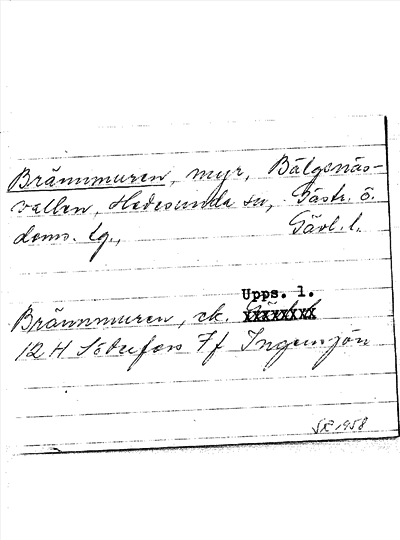 Brännmuren, myr, Bälgsnäs-
vallen, Hedesunda sn, Gästr. ö.
doms. lg., Gävl. l.
Upps. l.
Brännmuren, ek.
12 H Söderfors 7f Ingemjön
1958